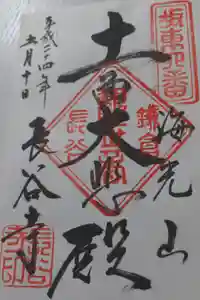 坂東四番
海光山
鎌倉
十一面大悲殿
長谷
長谷寺
平成二十四年
十一月十日